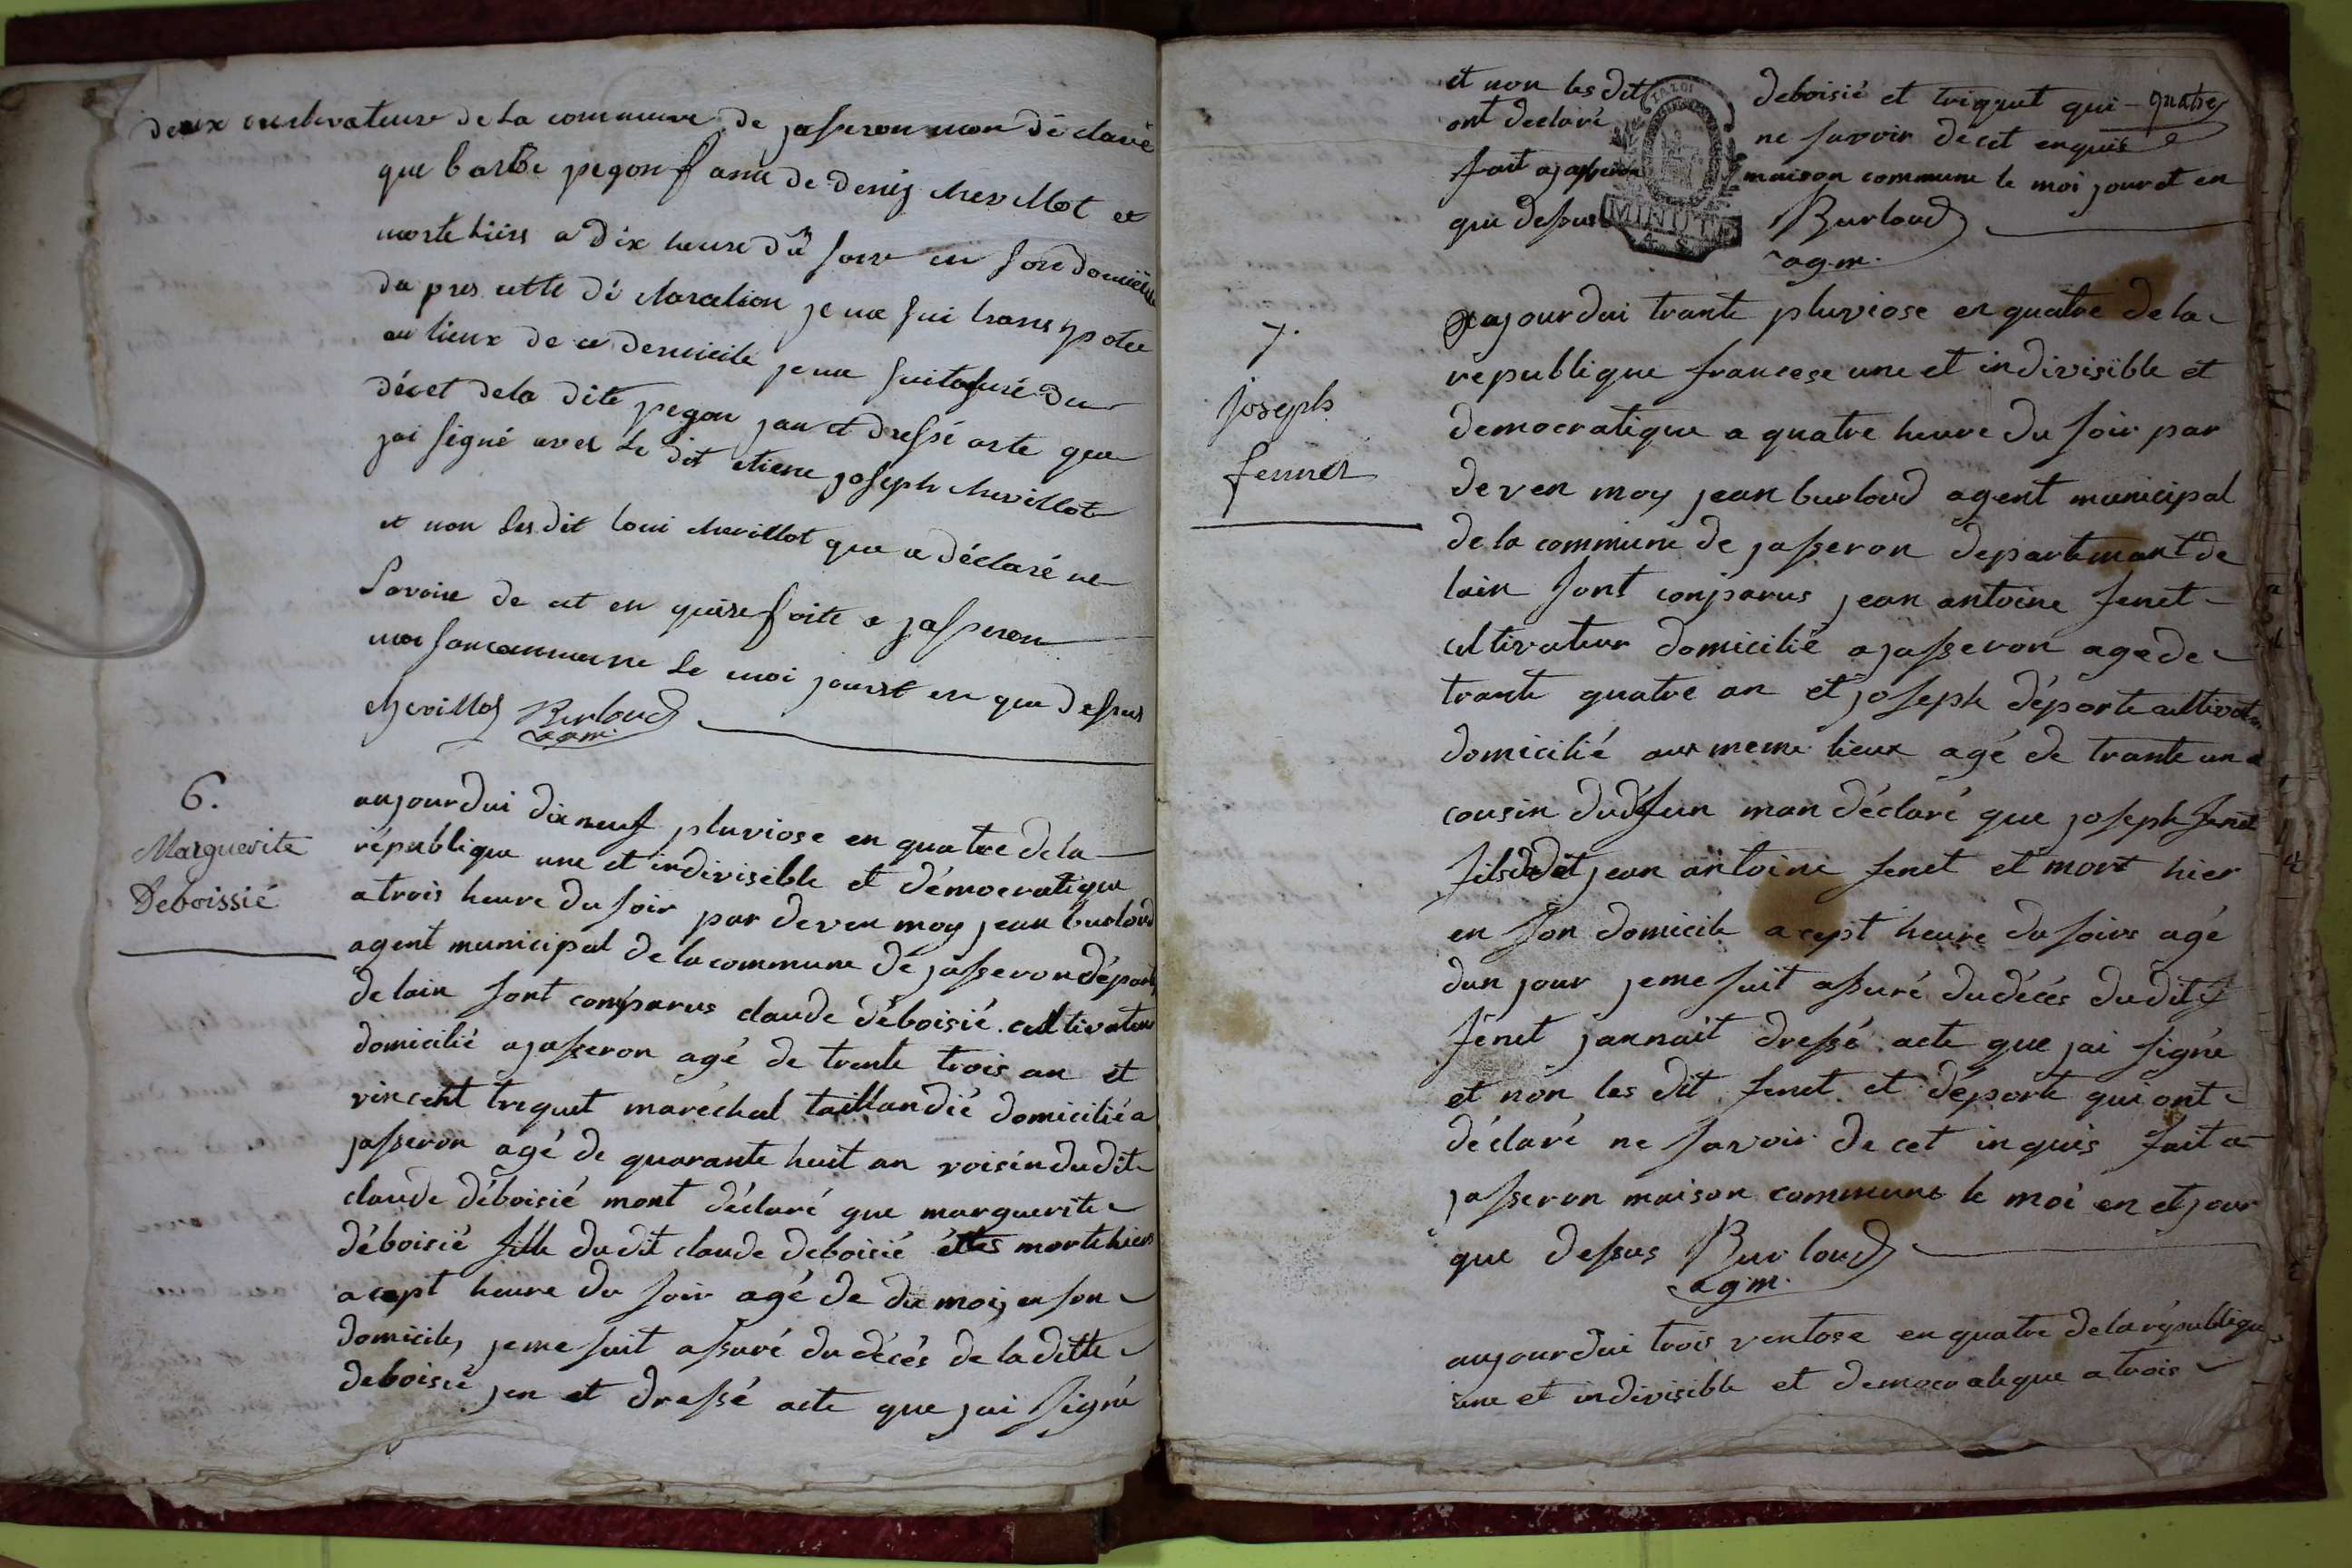 deux cultivateur de la commune de jasseron mon déclaré
que barbe pegon fame de denis chevillot et
morte hiers a dix heure du soir en son domicile
da pres cette dé claration je me sui trans potee
au lieux de ce demicile je me suit assuré du
décet de la dite pegon jan et dressé acte que
jai signé avec le dit etiene joseph chevillot
et non les dit loui chevillot que a déclaré ne
savoire de cet en quise faite a jasseron
maison commune le moi jour et en que dessus
chevillot Burloud
agm.
6.
Marguerite
Deboissié
aujourdui dixneuf pluviose en quatre de la
république une et indivisible et démocratique
a trois heure du soir par deven moy jean burloud
agent municipal de la commune de jasseron départ
de lain sont comparus claude déboisié cultivateur
domicilié a jasseron agé de trente trois an et
vincent triquet maréchal taillandié domicilié a
jasseron agé de quarante huit an voisin dudit
claude déboisié mont déclaré que marguerite
déboisié fille dudit claude deboisié ettes morte hiers
a cept heure du soir agé de dix mois en son
domicile, jeme suit assuré du décés de la ditte
deboisié jen et dressé acte que jai signé
et non les dit deboisié et triquet qui quatre
ont declaré ne savoir de cet enquis
fait a jasseron maison commune le moi jour et en
que dessus Burloud
agm.
MINUTE
7.
joseph
fennet
aujourdui trante pluviose en quatre de la
république francese une et indivisible et
democratique a quatre heure du soir par
deven moy jean burloud agent municipal
de la commune de jasseron departemant de
lain sont conparus jean antoine fenet
cultivateur domicilié a jasseron age de
trante quatre an et joseph déporte cultivateur
domicilié aux meme lieux agé de trante an
cousin dudéfun mon déclaré que joseph fenet
fils dudit jean antoine fenet et mort hier
en son domicile a cept heure du soire agé
dun jour jeme suit assuré du décés dudit
fenet jannait dressé acte que jai signé
et non les dit fenet et déporte qui ont
déclaré ne savoir de cet inquis fait a
jasseron maison commune le moi en et jour
que dessus Burloud
agm.
aujourdui trois ventose en quatre de la république
une et indivisible et democratique a trois